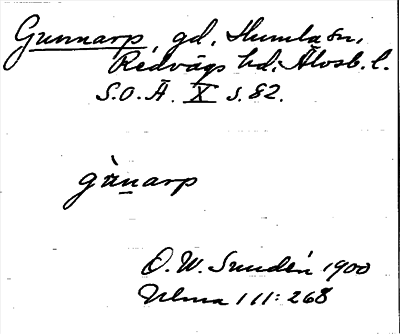 Gunnarp, gd, Humla sn,
Redvägs hd, Älvsb. l.
S.O.Ä. X s. 82.
gùnarp
O.W. Sundén 1900
Ulma 111:268